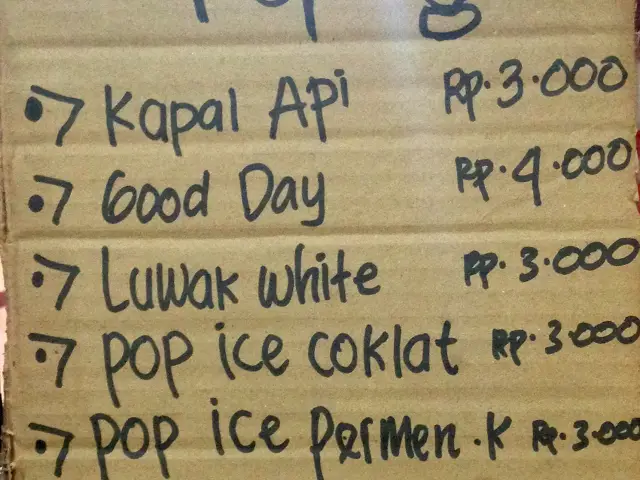 Kapal Api Rp. 3.000
Good Day Rp. 4.000
Luwak white Rp. 3.000
pop ice coklat Rp. 3.000
pop ice permen .K Rp. 3.000